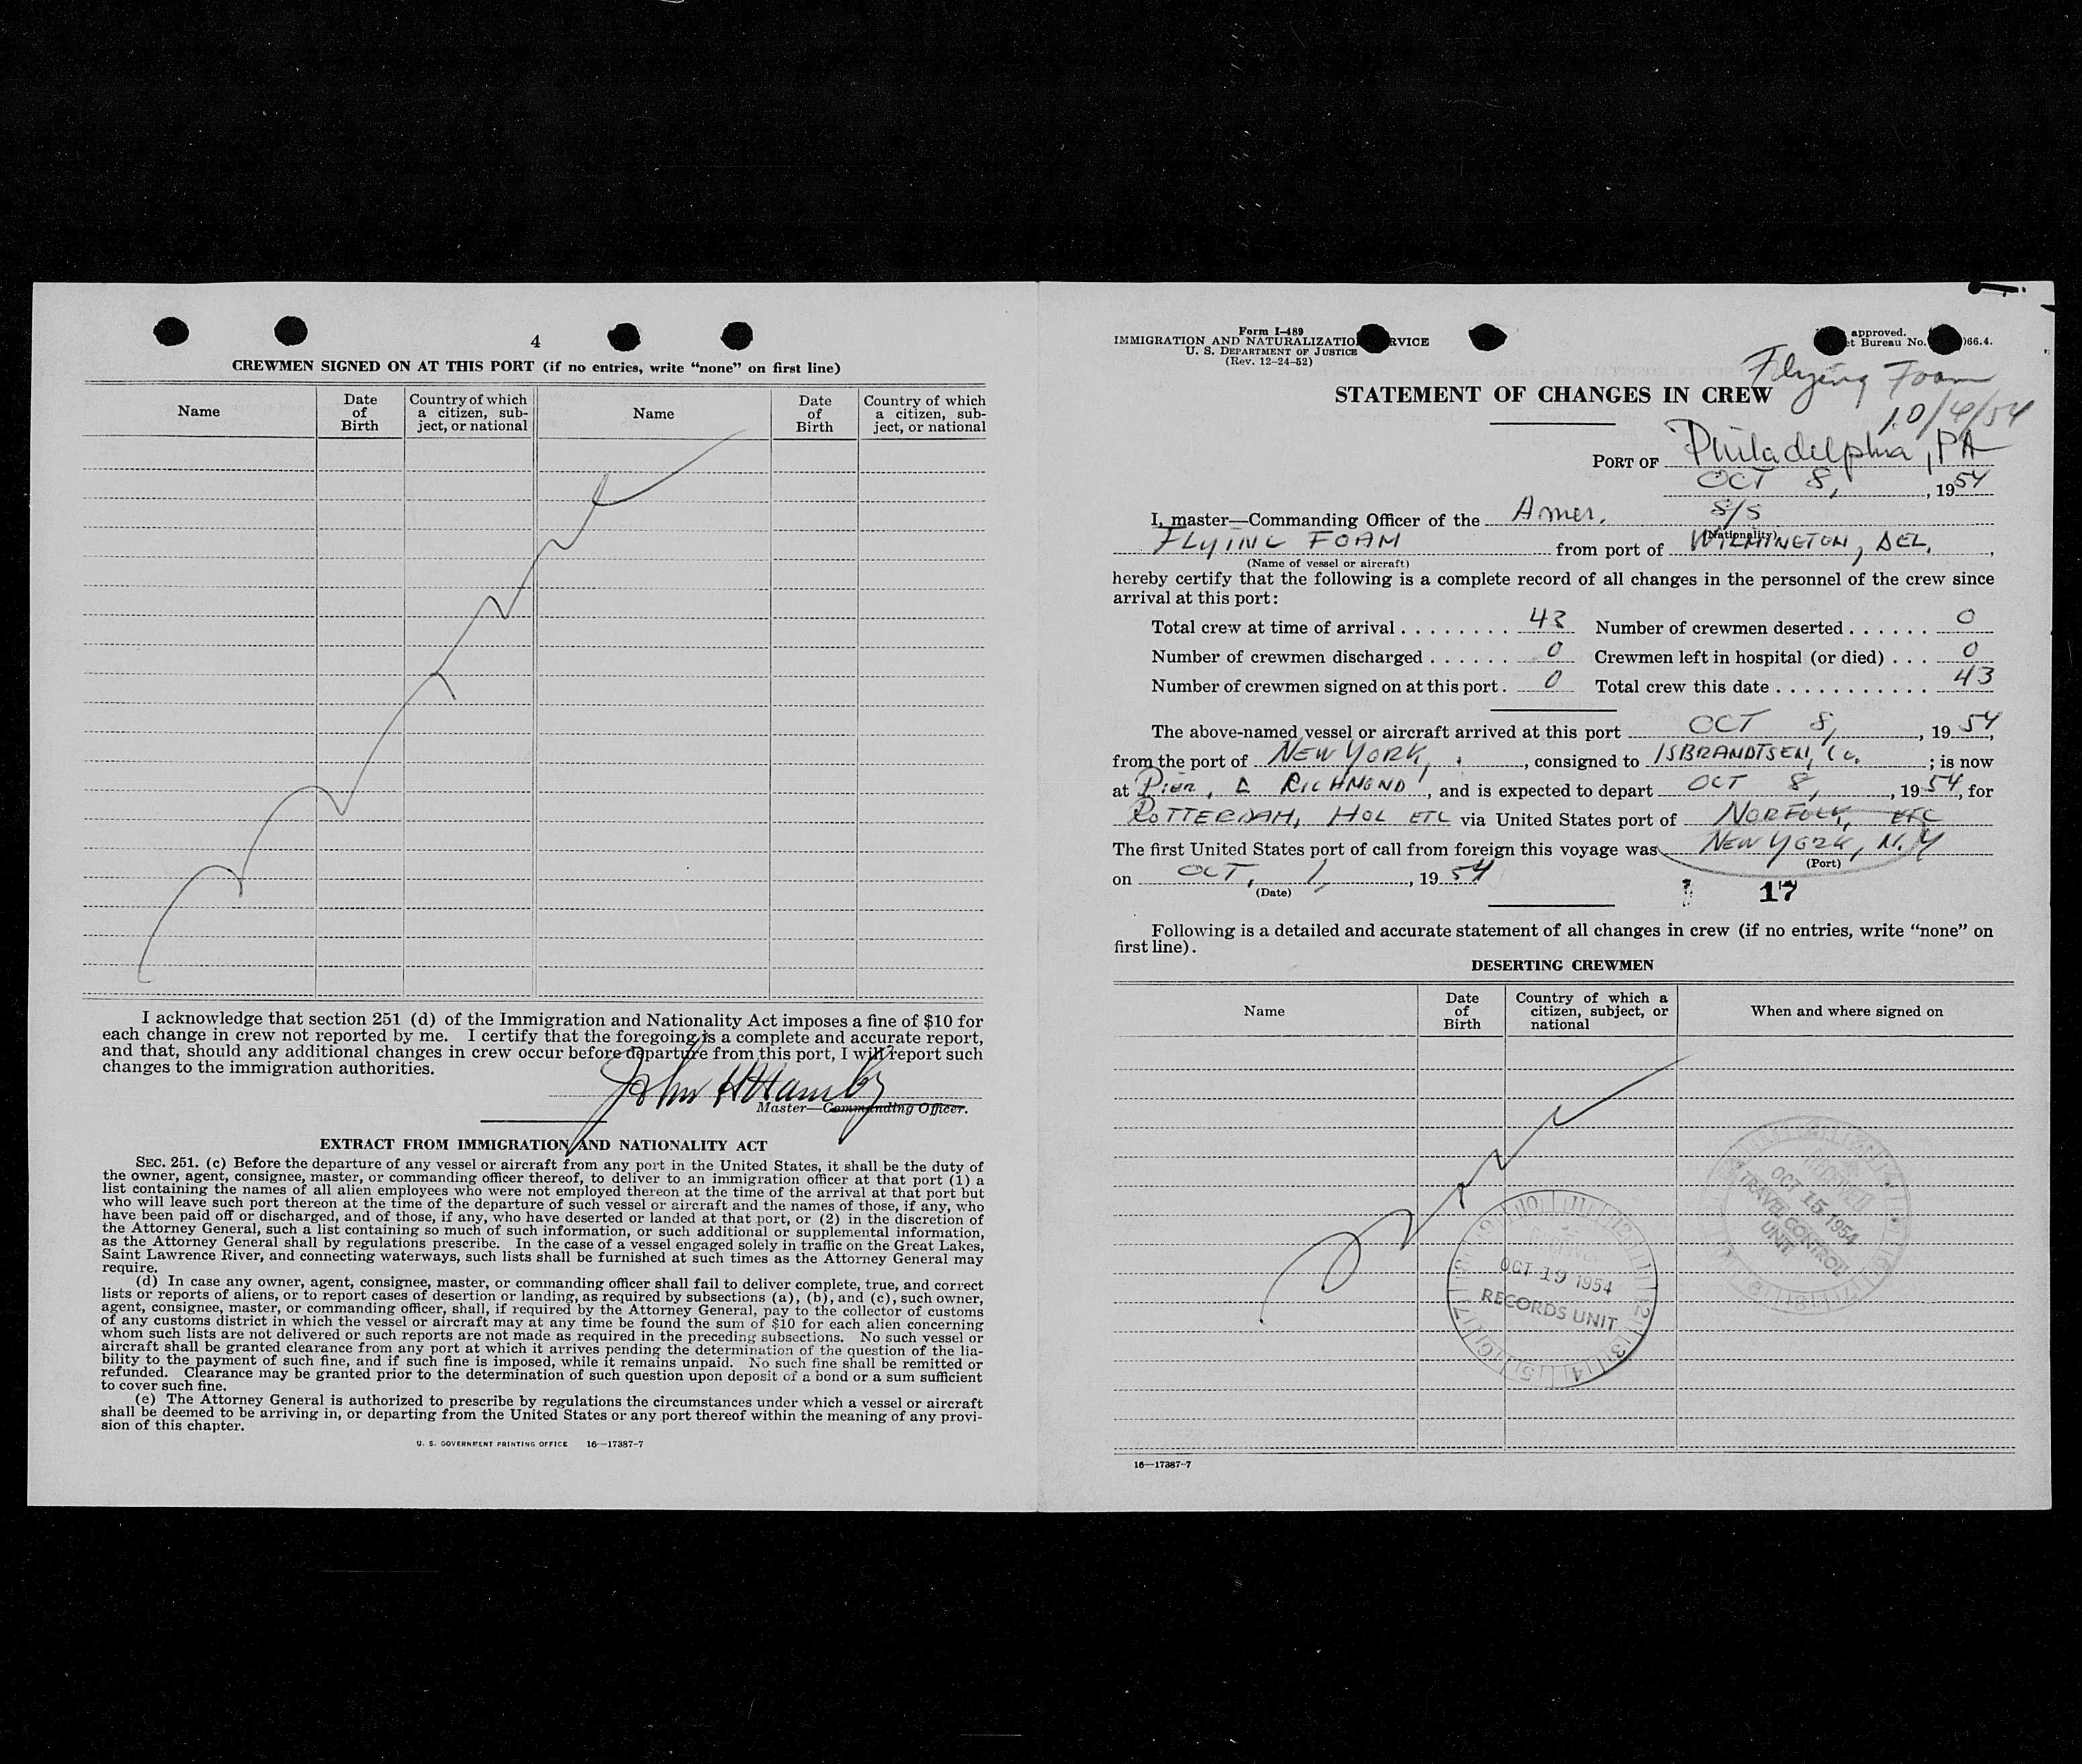 4
CREWMEN SIGNED ON AT THIS PORT (if no entries, write “none” on first line)
Name
Date of Birth
Country of which a citizen, sub-ject, or national
Name
Date of Birth
Country of which a citizen, sub-ject, or national
None
I acknowledge that section 251 (d) of the Immigration and Nationality Act imposes a fine of $10 for
each change in crew not reported by me. I certify that the foregoing is a complete and accurate report,
and that, should any additional changes in crew occur before departure from this port, I will report such
changes to the immigration authorities.
John H Hamby
Master—Commanding Officer.
EXTRACT FROM IMMIGRATION AND NATIONALITY ACT
SEC. 251. (c) Before the departure of any vessel or aircraft from any port in the United States, it shall be the duty of
the owner, agent, consignee, master, or commanding officer thereof, to deliver to an immigration officer at that port (1) a
list containing the names of all alien employees who were not employed thereon at the time of the arrival at that port but
who will leave such port thereon at the time of the departure of such vessel or aircraft and the names of those, if any, who
have been paid off or discharged, and of those, if any, who have deserted or landed at that port, or (2) in the discretion of
the Attorney General, such a list containing so much of such information, or such additional or supplemental information,
as the Attorney General shall by regulations prescribe. In the case of a vessel engaged solely in traffic on the Great Lakes,
Saint Lawrence River, and connecting waterways, such lists shall be furnished at such times as the Attorney General may
require.
(d) In case any owner, agent, consignee, master, or commanding officer shall fail to deliver complete, true, and correct
lists or reports of aliens, or to report cases of desertion or landing, as required by subsections (a), (b), and (c), such owner,
agent, consignee, master, or commanding officer, shall, if required by the Attorney General, pay to the collector of customs
of any customs district in which the vessel or aircraft may at any time be found the sum of $10 for each alien concerning
whom such lists are not delivered or such reports are not made as required in the preceding subsections. No such vessel or
aircraft shall be granted clearance from any port at which it arrives pending the determination of the question of the lia-
bility to the payment of such fine, and if such fine is imposed, while it remains unpaid. No such fine shall be remitted or
refunded. Clearance may be granted prior to the determination of such question upon deposit of a bond or a sum sufficient
to cover such fine.
(e) The Attorney General is authorized to prescribe by regulations the circumstances under which a vessel or aircraft
shall be deemed to be arriving in, or departing from the United States or any port thereof within the meaning of any provi-
sion of this chapter.
U. S. GOVERNMENT PRINTING OFFICE 16—17387-7
Form I-489
IMMIGRATION AND NATURALIZATIO RVICE
U. S. DEPARTMENT OF JUSTICE
(Rev. 12-24-52)
approved.
et Bureau No. 066.4.
Flying Foam
10/4/54
STATEMENT OF CHANGES IN CREW
PORT OF Philadelphia, PA
OCT 8, , 1954
I, master—Commanding Officer of the Amer. S/S
(Nationality)
FLYING FOAM from port of WILMINGTON, DEL. ,
(Name of vessel or aircraft)
hereby certify that the following is a complete record of all changes in the personnel of the crew since
arrival at this port:
Total crew at time of arrival 43 Number of crewmen deserted 0
Number of crewmen discharged 0 Crewmen left in hospital (or died) 0
Number of crewmen signed on at this port 0 Total crew this date 43
The above-named vessel or aircraft arrived at this port OCT 8, , 1954,
from the port of NEW YORK, , consigned to ISBRANDTSEN, Co. ; is now
at Pier, C RICHMOND, and is expected to depart OCT 8, , 1954, for
ROTTERDAM, HOL ETC via United States port of NORFOLK, ETC
The first United States port of call from foreign this voyage was NEW YORK, N.Y
(Port)
on OCT, 1, , 1954
(Date)
17
Following is a detailed and accurate statement of all changes in crew (if no entries, write “none” on
first line).
DESERTING CREWMEN
Name
Date of Birth
Country of which a citizen, subject, or national
When and where signed on
None
RECEIVED
OCT 15 1954
TRAVEL CONTROL
UNIT
RECEIVED
OCT 19 1954
RECORDS UNIT
16—17387-7